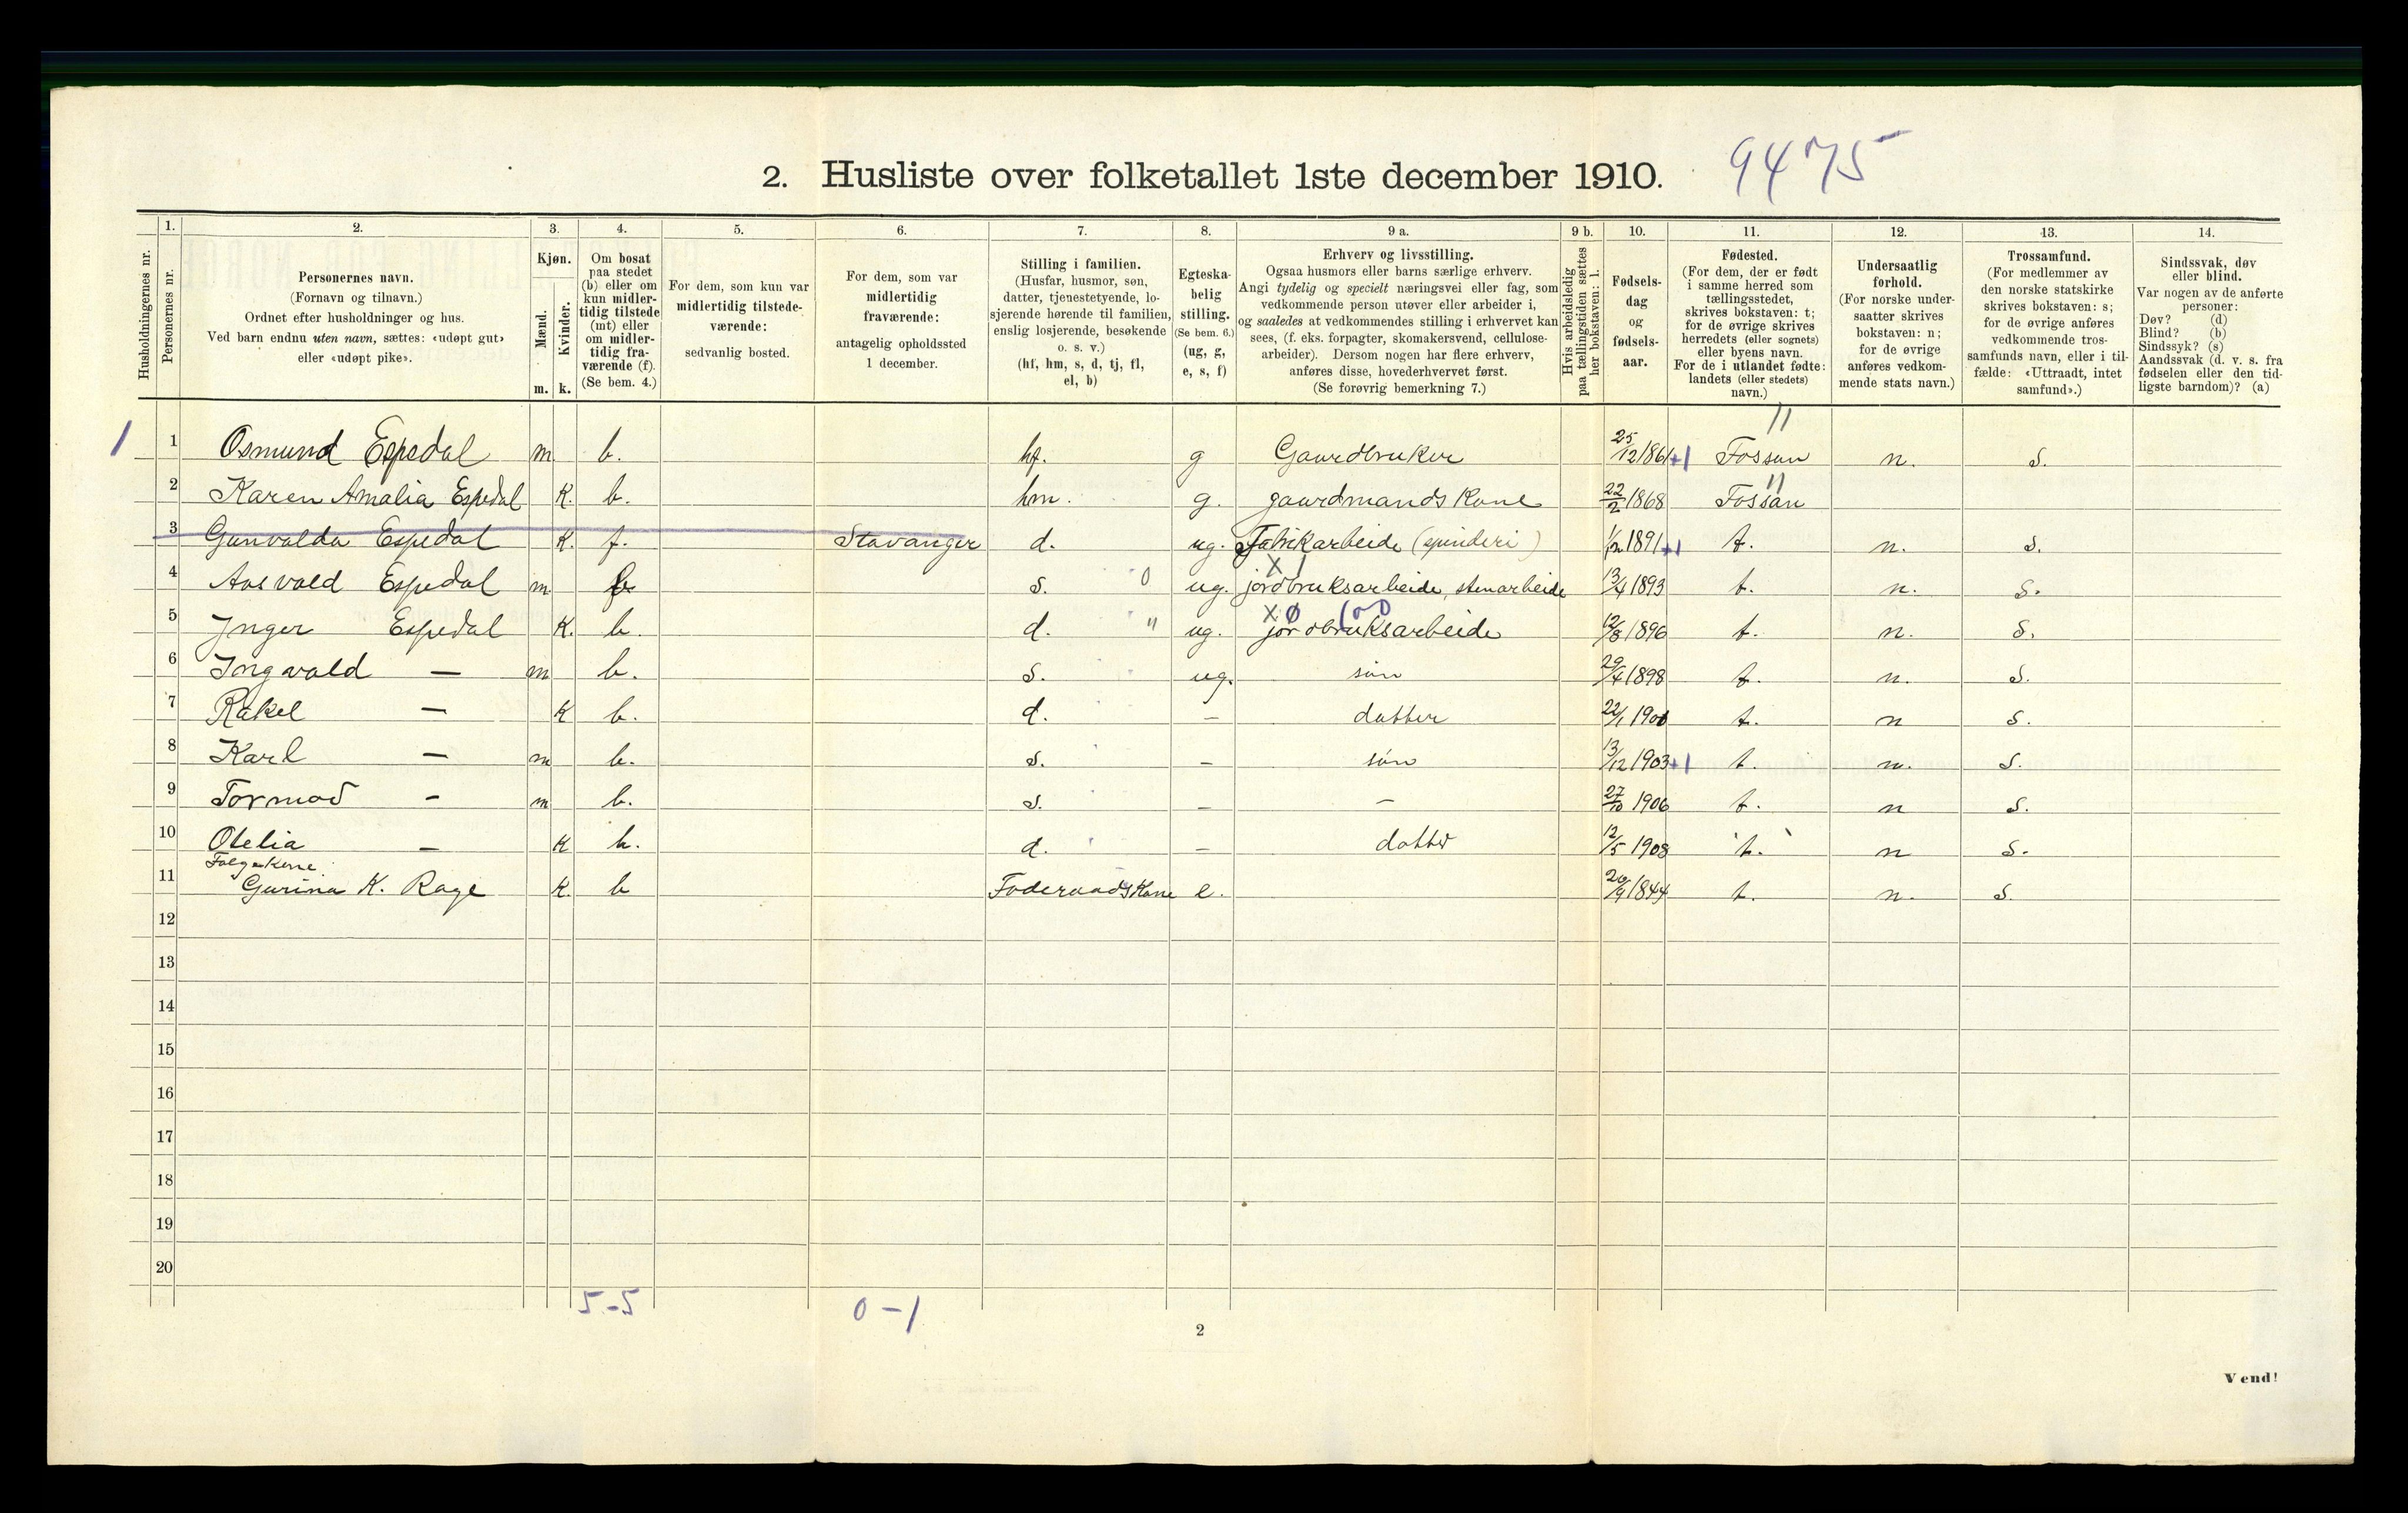 2. Husliste over folketallet 1ste december 1910. 9475
Husholdningernes nr.
1. Personernes nr.
2. Personernes navn. (Fornavn og tilnavn.) Ordnet efter husholdninger og hus. Ved barn endnu uten navn, sættes: «udøpt gut» eller «udøpt pike».
3. Kjøn. Mænd. m. Kvinder. k.
4. Om bosat paa stedet (b) eller om kun midlertidig tilstede (mt) eller om midlertidig fraværende (f). (Se bem. 4.)
5. For dem, som kun var midlertidig tilstedeværende: sedvanlig bosted.
6. For dem, som var midlertidig fraværende: antagelig opholdssted 1 december.
7. Stilling i familien. (Husfar, husmor, søn, datter, tjenestetyende, losjerende hørende til familien, enslig losjerende, besøkende o. s. v.) (hf, hm, s, d, tj, fl, el, b)
8. Egteskabelig stilling. (Se bem. 6.) (ug, g, e, s, f)
9 a. Erhverv og livsstilling. Ogsaa husmors eller barns særlige erhverv. Angi tydelig og specielt næringsvei eller fag, som vedkommende person utøver eller arbeider i, og saaledes at vedkommendes stilling i erhvervet kan sees, (f. eks. forpagter, skomakersvend, cellulosearbeider). Dersom nogen har flere erhverv, anføres disse, hovederhvervet først. (Se forøvrig bemerkning 7.)
9 b. Hvis arbeidsledig paa tællingstiden sættes her bokstaven: l.
10. Fødselsdag og fødselsaar.
11. Fødested. (For dem, der er født i samme herred som tællingsstedet, skrives bokstaven: t; for de øvrige skrives herredets (eller sognets) eller byens navn. For de i utlandet fødte: landets (eller stedets) navn.)
12. Undersaatlig forhold. (For norske undersaatter skrives bokstaven: n; for de øvrige anføres vedkommende stats navn.)
13. Trossamfund. (For medlemmer av den norske statskirke skrives bokstaven: s; for de øvrige anføres vedkommende trossamfunds navn, eller i tilfælde: «Uttraadt, intet samfund».)
14. Sindssvak, døv eller blind. Var nogen av de anførte personer: Døv? (d) Blind? (b) Sindssyk? (s) Aandssvak (d. v. s. fra fødselen eller den tidligste barndom)? (a)
11
1 1 Osmund Espedal m. b. hf. g Gaardbruker 25/12 1861 +1 Fossan n. s.
11
2 Karen Amalia Espedal K. b. hm. g. gaardmands Kone 22/2 1868 Fossan
3 Gunvalda Espedal K. f. Stavanger d. ug. Fabrikarbeide (spinderi) 1/12 1891 +1 t. n. s.
X 1
4 Aasvald Espedal m b. s. 0 ug. jordbruksarbeide, stenarbeide 13/4 1893 t. n. s.
X 0
5 Inger Espedal K. b. d. " ug. jordbruksarbeide 12/8 1896 t. n. s.
6 Ingvald — m b. s. ug. søn 29/4 1898 t. n. s.
7 Rakel — K b. d. — datter 22/1 1901 t. n s.
8 Karl — m b. s. — søn 13/12 1903 +1 t. n. s.
9 Tormod - m b. s. — — 27/10 1906 t. n s.
10 Otelia — K b. d. — datter 12/5 1908 t. n s.
11 Gurina K. Rage K. b Foderaads Kone e. 20/9 1844 t. n. s.
12
13
14
15
16
17
18
19
20
5-5 0-1
2
Vend!